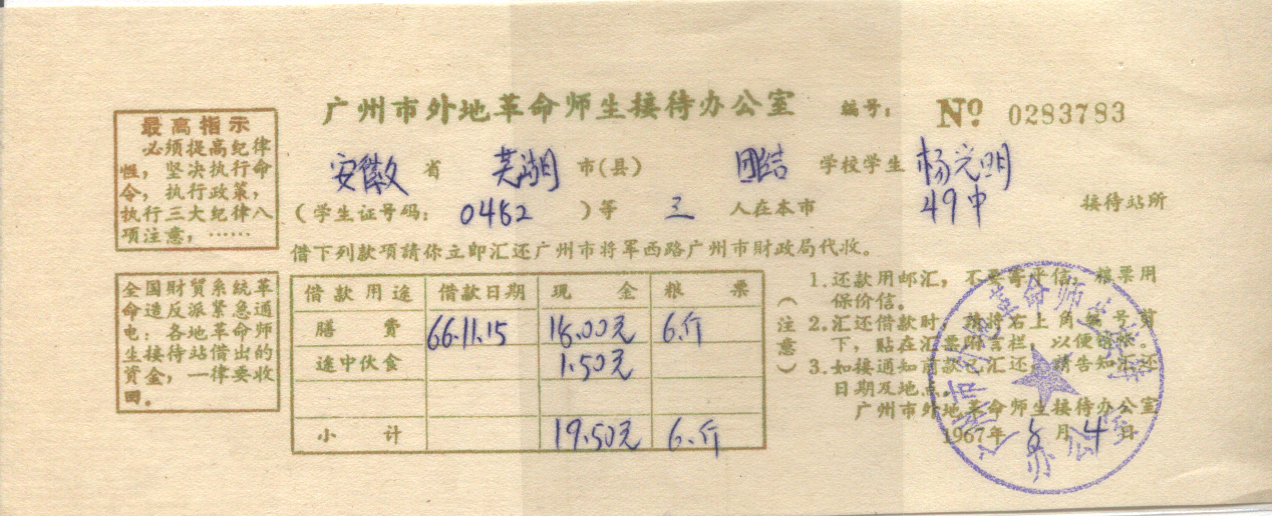 广州市外地革命师生接待办公室 编号： № 0283783
最高指示
必须提高纪律
性，坚决执行命
令，执行政策，
执行三大纪律八
项注意，……
安徽省 芜湖市(县) 团结学校学生 杨光明
(学生证号码： 0482 )等 三 人在本市 49中 接待站所
借下列款项請你立即汇还广州市将军西路广州市財政局代收。
全国財貿系統革
命造反派紧急通
电：各地革命师
生接待站借出的
资金，一律要收
回。
借款用途 借款日期 现金 粮票
膳费 66.11.15 18.00元 6.斤
途中伙食 1.50元
小计 19.50元 6.斤
(注意)
1.还款用邮汇，不要寄平信。粮票用
保价信。
2.汇还借款时，請将右上角编号剪
下，贴在汇票附言栏，以便
3.如接通知前款已汇还，請告知汇还
日期及地点。
广州市外地革命师生接待办公室
1967年 月 4 日